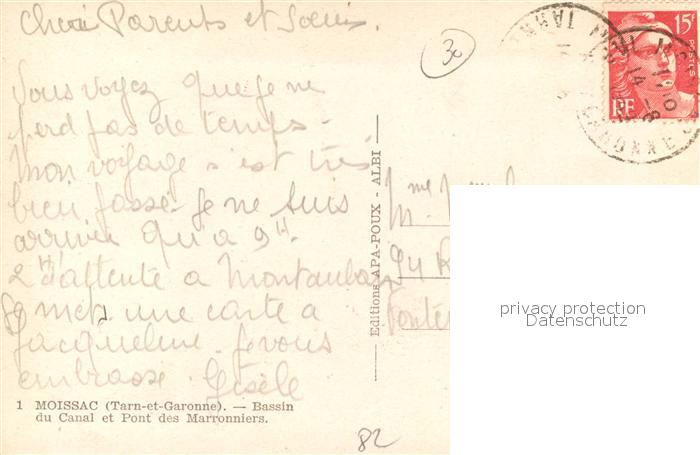 Chers Parents et Soeurs.
Vous voyez que je ne
perd pas de temps.
Mon voyage s'est très
bien passé. Je ne suis
arrivée qu'a 9H.
2H d'attente a Montauban
Je mets une carte a
Jacqueline. Je vous
embrasse Gisèle
1 MOISSAC (Tarn-et-Garonne). — Bassin
du Canal et Pont des Marronniers.
82
Editions APA-POUX - ALBI
30
15F
POSTES
RF
TARN
14
GARONNE
Mme
94 R
privacy protection
Datenschutz